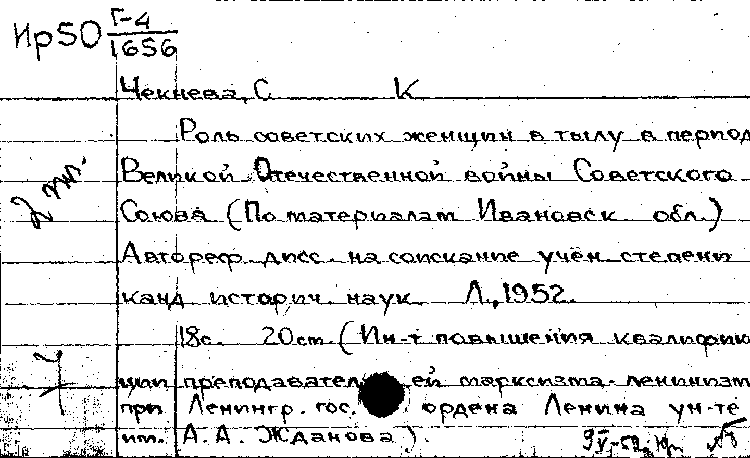 Ир50 Г-4
1656
Чекнева, С К
Роль советских женщин в тылу в период
Великой Отечественной войны Советского
2 тп.
Союза (По материалам Ивановск. обл.)
Автореф. дисс. на соискание учён. степени
канд. историч. наук. Л., 1952.
18с. 20см. (Ин-т повышения квалифик
ции преподавателей марксизма-ленинизм
при Ленингр. гос. ордена Ленина ун-те
им. А. А. Жданова).